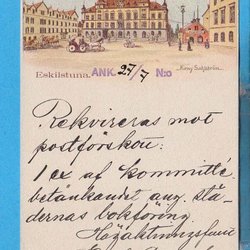 Eskilstuna. ANK. 27/7 N:o
Rekvireras mot
postförskou:
1 ex af kommitté-
betänkandet ang. stä-
dernas bokföring.
Högaktningsfull